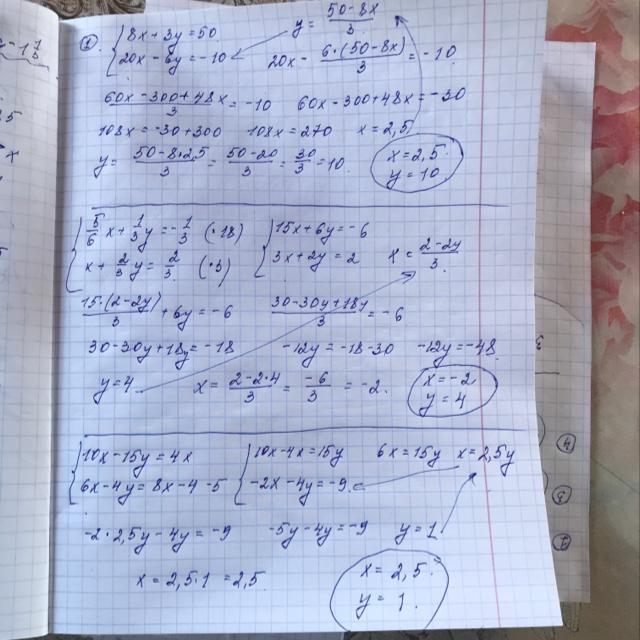 ① { 8x + 3y = 50      y = (50-8x)/3
{ 20x - 6y = -10      20x - 6·(50-8x)/3 = -10
(60x - 300 + 48x)/3 = -10      60x - 300 + 48x = -30
108x = -30 + 300      108x = 270      x = 2,5
y = (50-8·2,5)/3 = (50-20)/3 = 30/3 = 10.      x = 2,5
y = 10
{ 5/6 x + 1/3 y = -1/3 (·18)      { 15x + 6y = -6
{ x + 2/3 y = 2/3 (·3)      { 3x + 2y = 2      x = (2-2y)/3.
15·(2-2y)/3 + 6y = -6      (30-30y+18y)/3 = -6
30 - 30y + 18y = -18      -12y = -18-30      -12y = -48.
y = 4      x = (2-2·4)/3 = -6/3 = -2.      x = -2
y = 4
{ 10x - 15y = 4x      { 10x - 4x = 15y      6x = 15y      x = 2,5y
{ 6x - 4y = 8x - 4 - 5      { -2x - 4y = -9
-2·2,5y - 4y = -9      -5y - 4y = -9      y = 1
x = 2,5·1 = 2,5.      x = 2,5
y = 1.